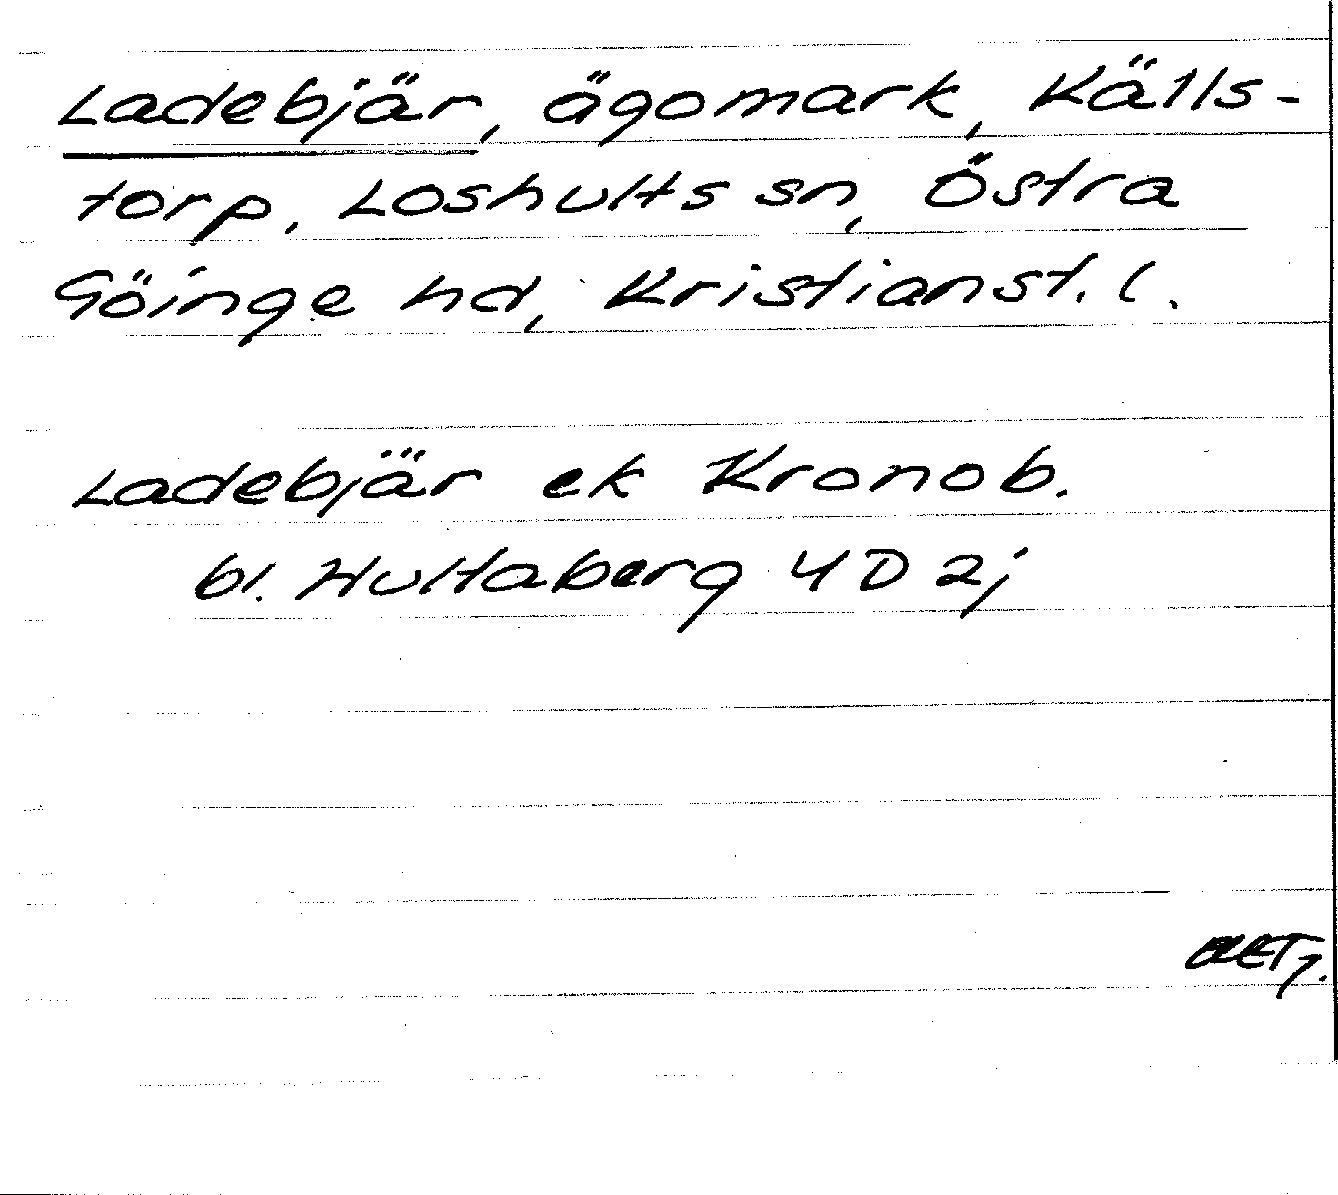 Ladebjär, ägomark, Källs-
torp, Loshults sn, Östra
Göinge hd, Kristianst. l.
Ladebjär ek Kronob.
bl. Hultaberg 4D 2j